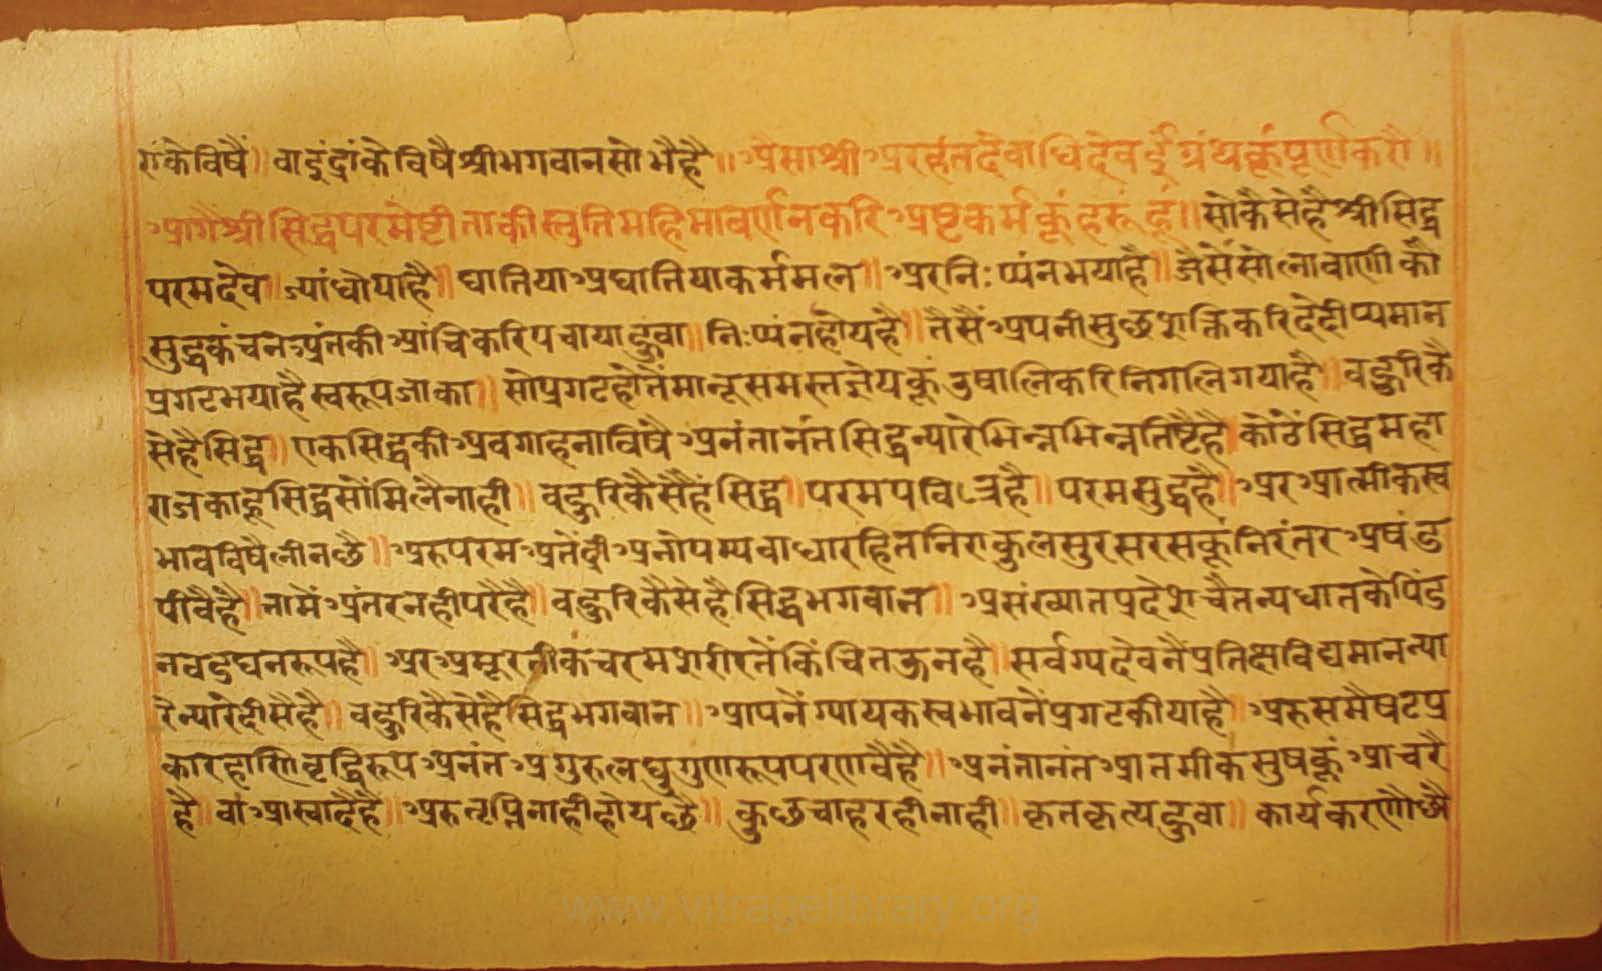 रांकेविषैं॥ वाइंद्रांकेविषैश्रीभगवानसोभैहै॥ अैसाश्रीअरहंतदेवाधिदेवईग्रंथकूंपूर्णकरौ॥
आगैंश्रीसिद्धपरमेष्टीताकीस्तुतिमहिमावर्णनकरिअष्टकर्मकूंहरूंहूं॥ सोकैसेहैश्रीसिद्ध
परमदेव॥ ज्यांधोयाहै॥ घातियाअघातियाकर्ममल॥ अरनिःप्पंनभयाहै॥ जैसेंसोलावाणीकौ
सुद्धकंचनअंतकीआंचिकरिपचायाहुवा॥ निःप्पंनहोयहै॥ तैसैंअपनीसुछशक्तिकरिदेदीप्यमान
प्रगटभयाहैस्वरूपजाका॥ सोप्रगटहोतेंमानूसमस्तज्ञेयकूंउषालिकरिनिगलिगयाहै॥ बहुरिकै
सेहैसिद्ध॥ एकसिद्धकीअवगाहनाविषैअनंतानंतसिद्धन्यारेभिन्नभिन्नतिष्टैहै॥ कोंठेंसिद्धमहा
राजकाहूसिद्धसोंमिलैनाही॥ बहुरिकैसैहैंसिद्ध॥ परमपवित्रहै॥ परमसुद्धहै॥ अरआत्मीकस्व
भावविषैलीनछै॥ अरुपरमअतेंद्रीअनोपम्यवाधारहितनिराकुलसुरसरसकूंनिरंतरअषंड
पीवैहै॥ तामेंअंतरनहीपरैहै॥ बहुरिकैसेहैसिद्धभगवान॥ असंख्यातप्रदेशचैतन्यधातकेपिंड
नवडघनरूपहै॥ अरअमूरतीकचरमशरीरतेंकिंचितऊनहै॥ सर्वग्यदेवनैंप्रतिक्षविद्यमानन्या
रेन्यारेदीसैहै॥ बहुरिकैसेहैसिद्धभगवान॥ आपनेंग्यायकस्वभावनेंप्रगटकीयाहै॥ अरुसमैषटप्र
कारहाणिवृद्धिरूपअनंतअगुरुलघुगुणरूपपरणवैहै॥ अनंतानंतआतमीकसुषकूंआचरै
है॥ वांआस्वादैहै॥ अरुतृप्तिनाहीहोयछै॥ कुछचाहरहीनाही॥ कृतकृत्यहुवा॥ कार्यकरणौछौ
www.vitragelibrary.org